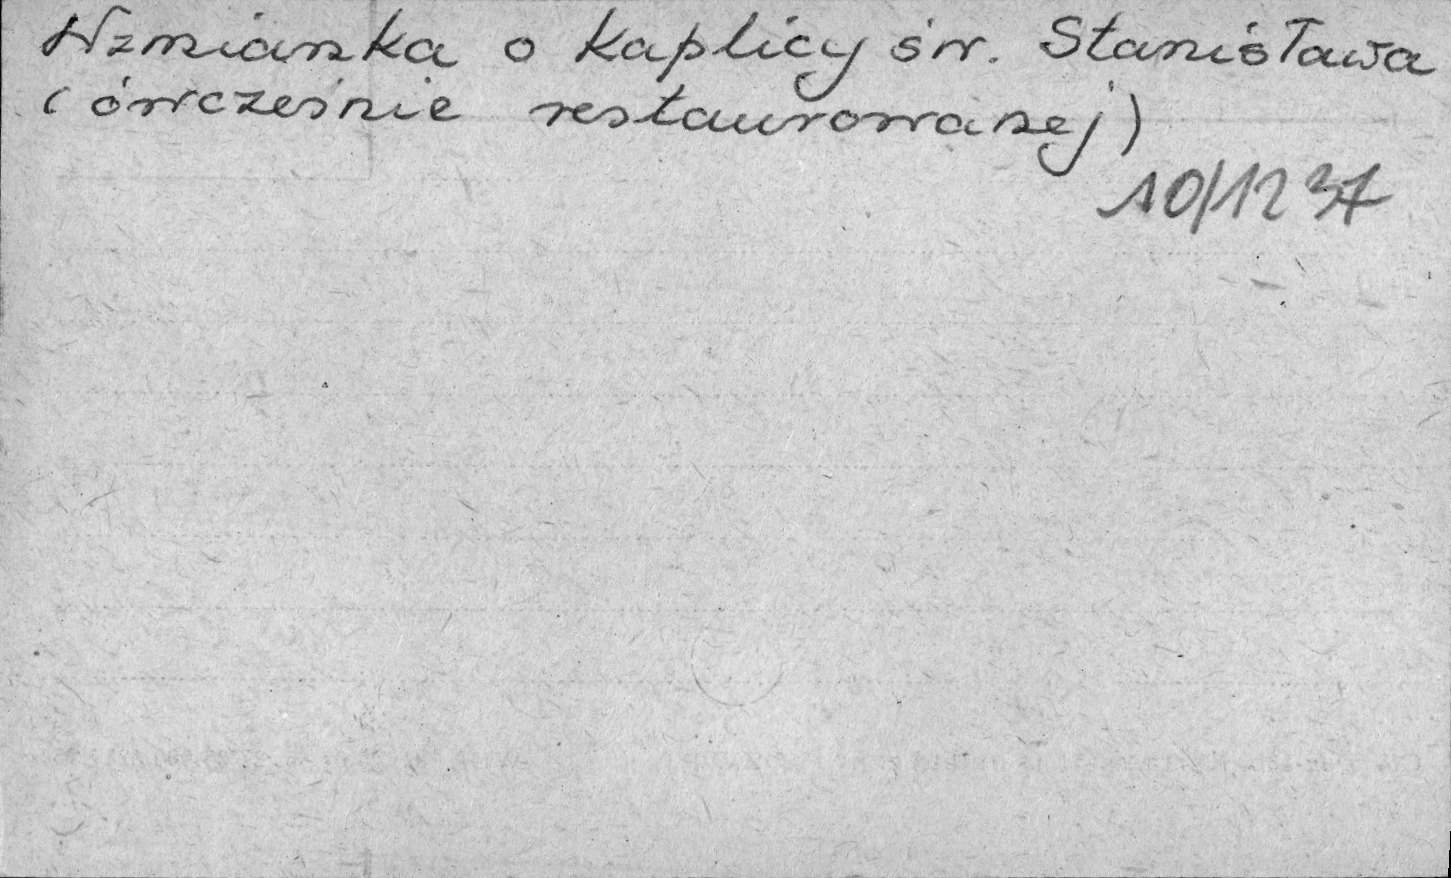 Wzmianka o kaplicy św. Stanisława
(ówcześnie restaurowanej)
10/12 37